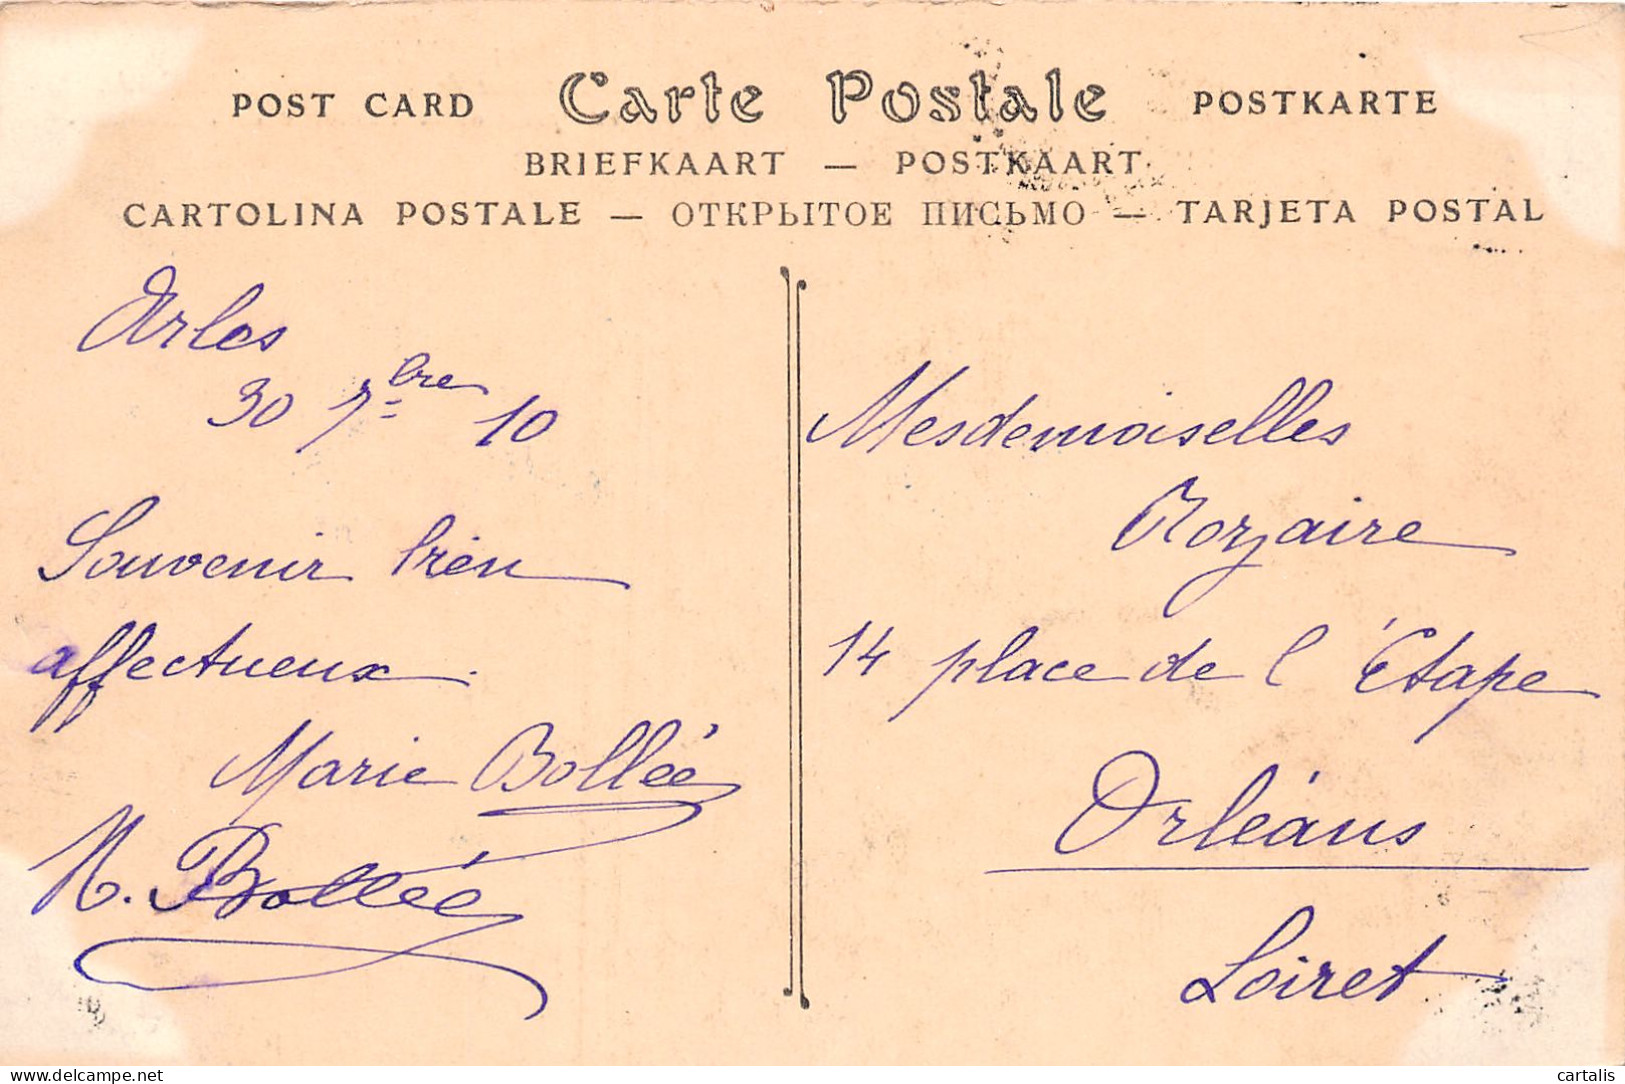 POST CARD Carte Postale POSTKARTE
BRIEFKAART — POSTKAART
CARTOLINA POSTALE — ОТКРЫТОЕ ПИСЬМО — TARJETA POSTAL
Arles
30 7bre 10
Souvenir bien
affectueux.
Marie Bollée
Bollée
Mesdemoiselles
Rozaire
14 place de l'Étape
Orléans
Loiret
cartalis